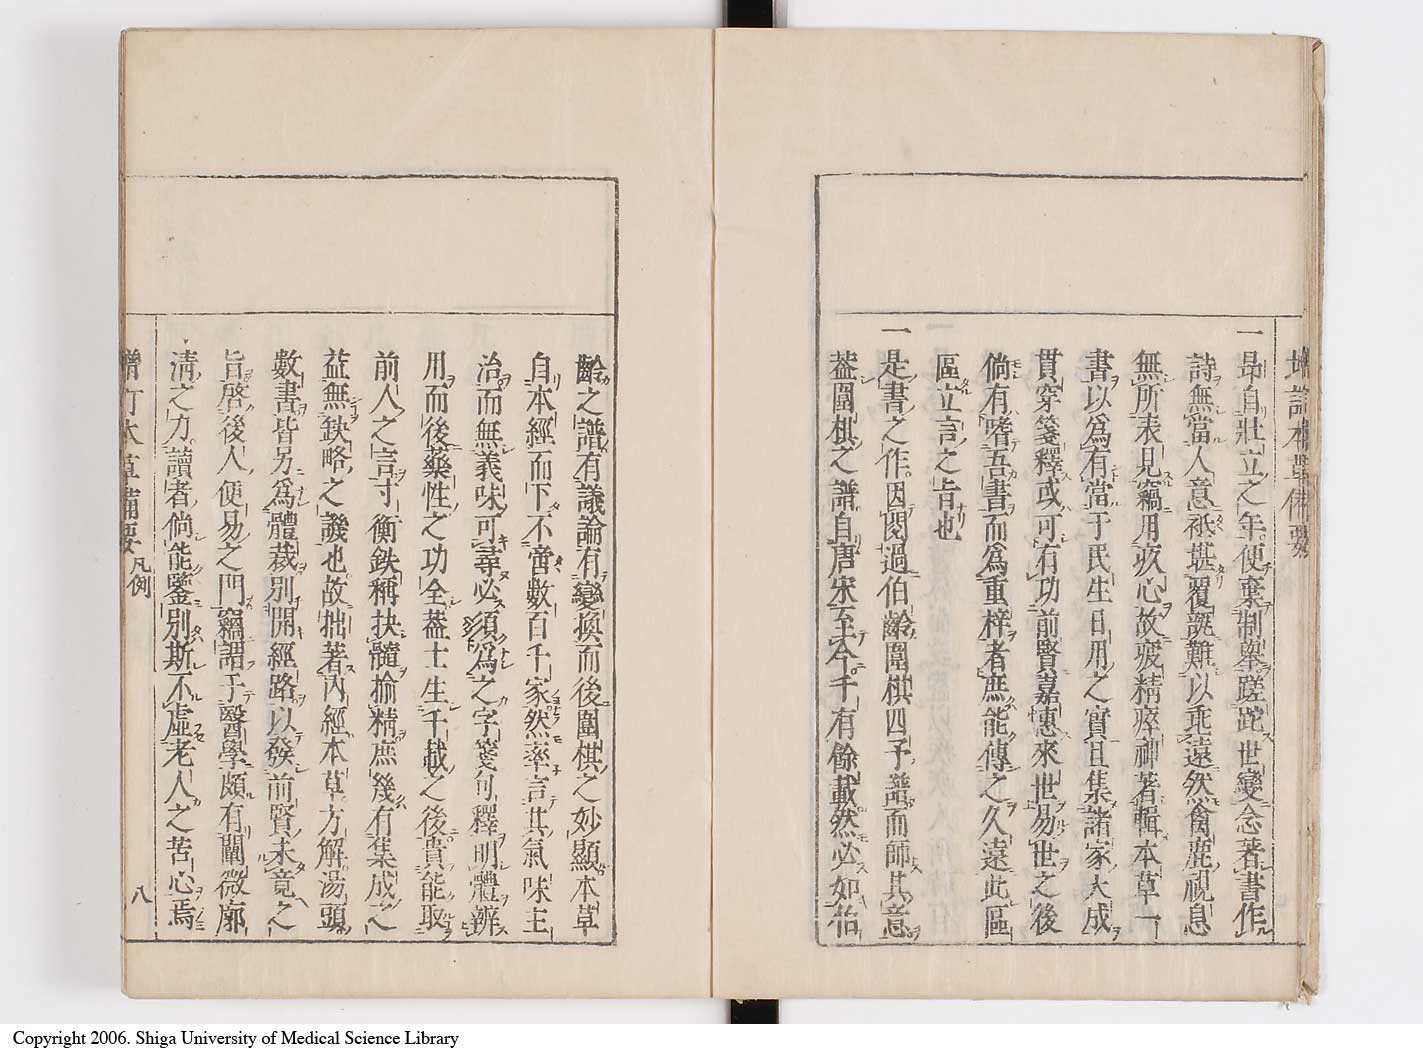 增訂本草備要
一昂自壯立之年便棄制舉蹉跎世變念著書作
詩無當人意祗堪覆瓿難以乖遠然禽鹿視息
無所表見竊用疚心故疲精瘁神著輯本草一
書以爲有當于民生日用之實且集諸家大成
貫穿箋釋或可有功前賢嘉惠來世易世之後
倘有嗜吾書而爲重梓者庶能傳之久遠此區
區立言之旨也
一是書之作因閱過伯齡圍棋四子譜而師其意
葢圍棋之譜自唐宋至今千有餘載然必如伯
齡之譜有議論有變換而後圍棋之妙顯本草
自本經而下不啻數百千家然率言其氣味主
治而無義味可尋必須爲之字箋句釋明體辨
用而後藥性之功全葢士生千載之後貴能取
前人之言寸衡銖稱抉髓掄精庶幾有集成之
益無缺略之譏也故拙著內經本草方解湯頭
數書皆另爲體裁別開經路以發前賢未竟之
旨啓後人便易之門竊謂于醫學頗有闡微廓
清之力讀者倘能鑒別斯不虛老人之苦心焉
增訂本草備要 凡例 八
Copyright 2006. Shiga University of Medical Science Library